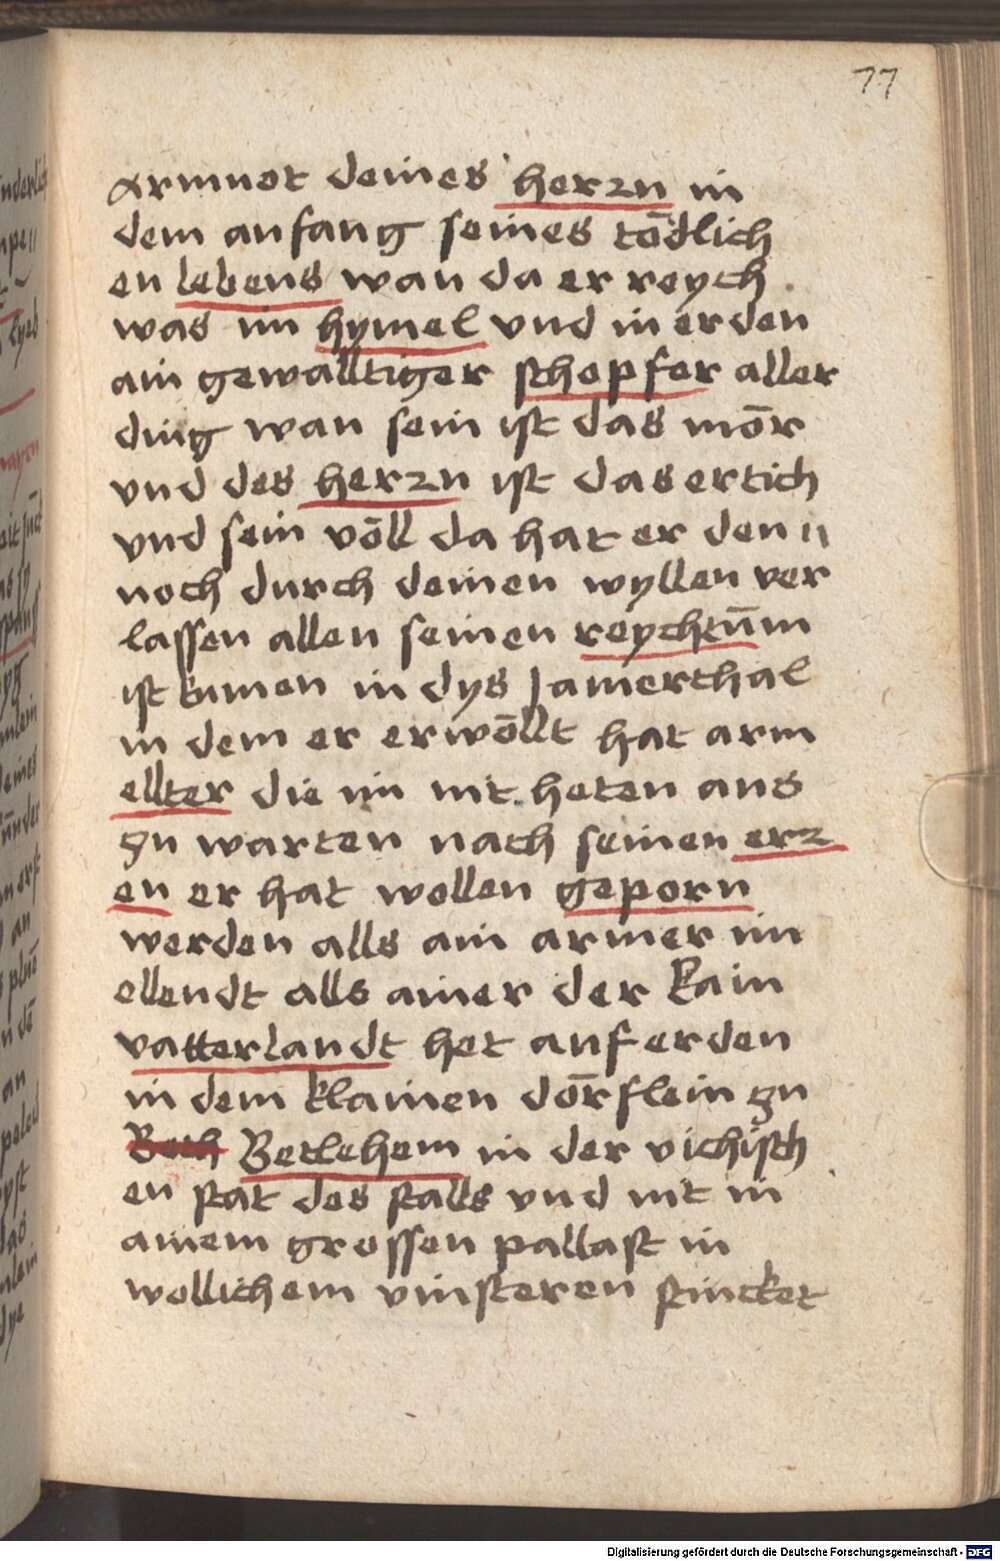 77
armuot deines herzn in
dem anfang seines tödlich
en lebens wan da er reych
was im hymel vnd in erden
ain gewalltiger schepfer aller
ding wan sein ist das mör
vnd des herzn ist das ertich
vnd sein völl da hat er den
noch durch deinen wyllen ver
lassen allen seinen reychtūm
ist kumen in dys Jamerthal
in dem er erwöllt hat arm
ellter die im nit heten aus
zu warten nach seinen erz
en er hat wollen geporn
werden alls ain armer im
ellendt alls ainer der kain
vatterlandt het auf erden
in dem klainen dörflein zu
Beth Betlehem in der vichisch
en stat des stalls vnd nit in
ainem grossen pallast in
wollichem vinsteren stincket
Digitalisierung gefördert durch die Deutsche Forschungsgemeinschaft - DFG